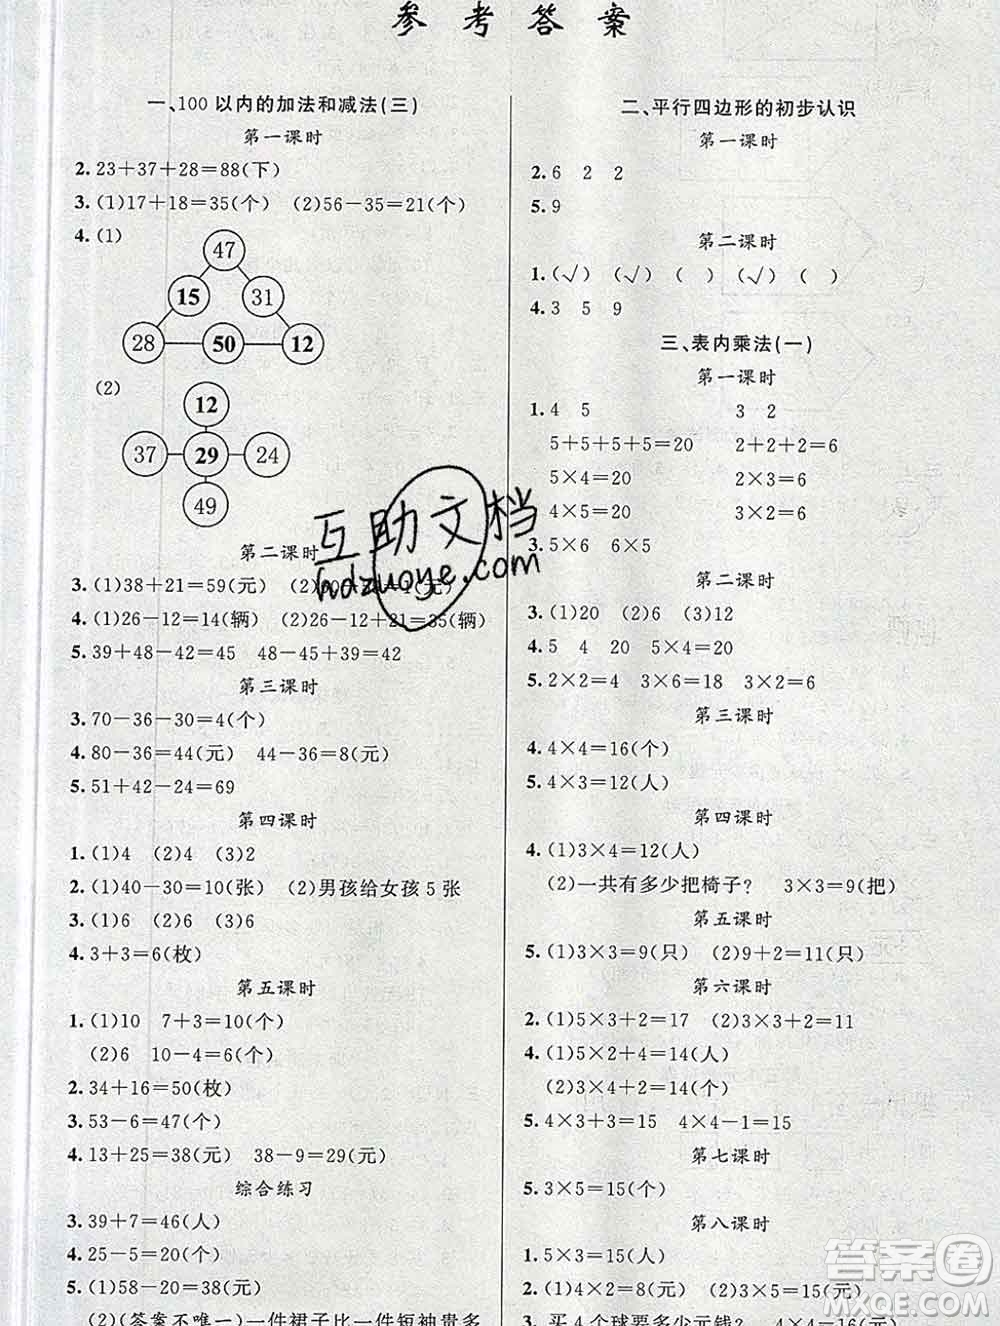 参考答案
一、100以内的加法和减法(三)
第一课时
2. 23+37+28=88(下)
3. (1)17+18=35(个) (2)56-35=21(个)
4. (1)
47
15 31
28 50 12
(2)
12
37 29 24
49
第二课时
3. (1)38+21=59(元) (2)
4. (1)26-12=14(辆) (2)26-12+21=35(辆)
5. 39+48-42=45 48-45+39=42
第三课时
3. 70-36-30=4(个)
4. 80-36=44(元) 44-36=8(元)
5. 51+42-24=69
第四课时
1. (1)4 (2)4 (3)2
2. (1)40-30=10(张) (2)男孩给女孩5张
3. (1)6 (2)6 (3)6
4. 3+3=6(枚)
第五课时
1. (1)10 7+3=10(个)
(2)6 10-4=6(个)
2. 34+16=50(枚)
3. 53-6=47(个)
4. 13+25=38(元) 38-9=29(元)
综合练习
3. 39+7=46(人)
4. 25-5=20(名)
5. (1)58-20=38(元)
(2)(答案不唯一)一件裙子比一件短袖贵多
二、平行四边形的初步认识
第一课时
2. 6 2 2
5. 9
第二课时
1. (√) (√) ( ) (√) ( )
4. 3 5 9
三、表内乘法(一)
第一课时
1. 4 5 3 2
5+5+5+5=20 2+2+2=6
5×4=20 2×3=6
4×5=20 3×2=6
3. 5×6 6×5
第二课时
3. (1)20 (2)6 (3)12
4. 5 4 20 5×4=20
5. 2×2=4 3×6=18 2×3=6
第三课时
4. 4×4=16(个)
5. 4×3=12(人)
第四课时
4. (1)3×4=12(人)
(2)一共有多少把椅子? 3×3=9(把)
第五课时
5. (1)3×3=9(只) (2)9+2=11(只)
第六课时
2. (1)5×3+2=17 (2)3×3+2=11
4. (1)5×2+4=14(人)
(2)3×4+2=14(个)
5. 4×3+3=15 4×4-1=15
第七课时
5. 3×5=15(个)
第八课时
1. 5×3=15(人)
2. (1)4×2=8(元) (2)3×5=15(元)
3. 买4个球要多少元钱? 4×4=16(元)
互助文档
hdzuoye.com
答案圈
MXQE.COM